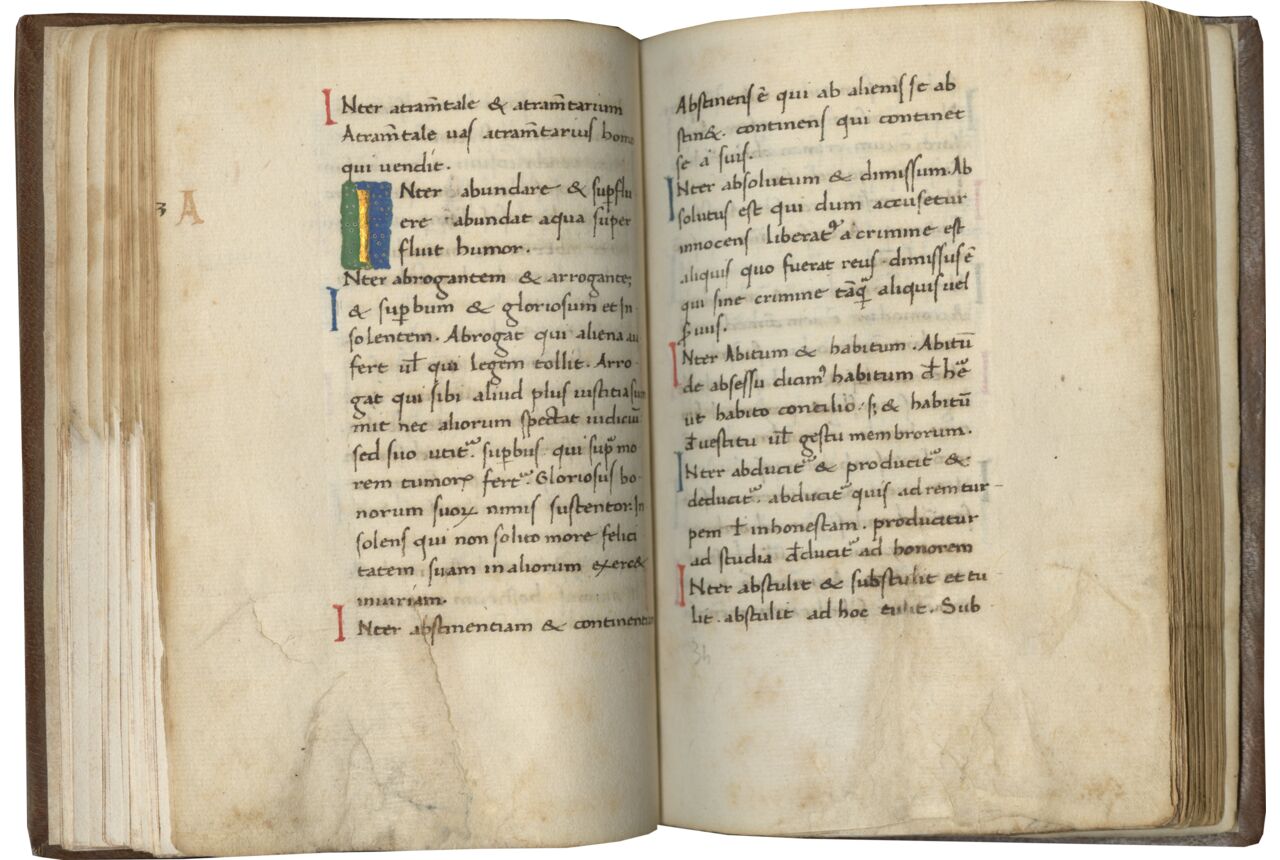 A
INter atram̄tale & atram̄tarium
Atram̄tale uas atram̄tarius homo
qui uendit.
INter abundare & sup̱flu
ere abundat aqua super
fluit humor.
INter abrogantem & arrogante;
& sup̱bum & gloriosum et In
solentem. Abrogat qui aliena au
fert ul̄ qui legem tollit. Arro
gat qui sibi aliud plus iustitia sum
mit nec aliorum spectat iudiciū
sed suo utit᷑. sup̱bus qui sup̱ mo
rem tumoꝝ fert᷑. Gloriosus bo
norum suoꝝ nimis sustentor. In
solens qui non solito more felici
tatem suam in aliorum exerc&
iniuriam.
INter abstinentiam & continent
Abstinens ē qui ab alienis se ab
stin&. continens qui continet
se a suis.
INter absolutum & dimissum. Ab
solutus est qui dum accusetur
innocens liberatꝰ a crimine est
aliquis quo fuerat reus. dimissus ē
qui sine crimine tāq̄ aliquis uel
INter Abitum & habitum. Abitū
de absessu dicimꝰ habitum đ hē
ut habito concilio. s; & habitū
đ uestitu ul̄ gestu membrorum.
INter abducit᷑ & producit᷑ &
deducit᷑. abducit᷑ quis ad rem tur
pem ł inhonestam. producitur
ad studia đducit᷑ ad honorem
INter abstulit & substulit et tu
lit. abstulit ad hoc tulit. Sub
34